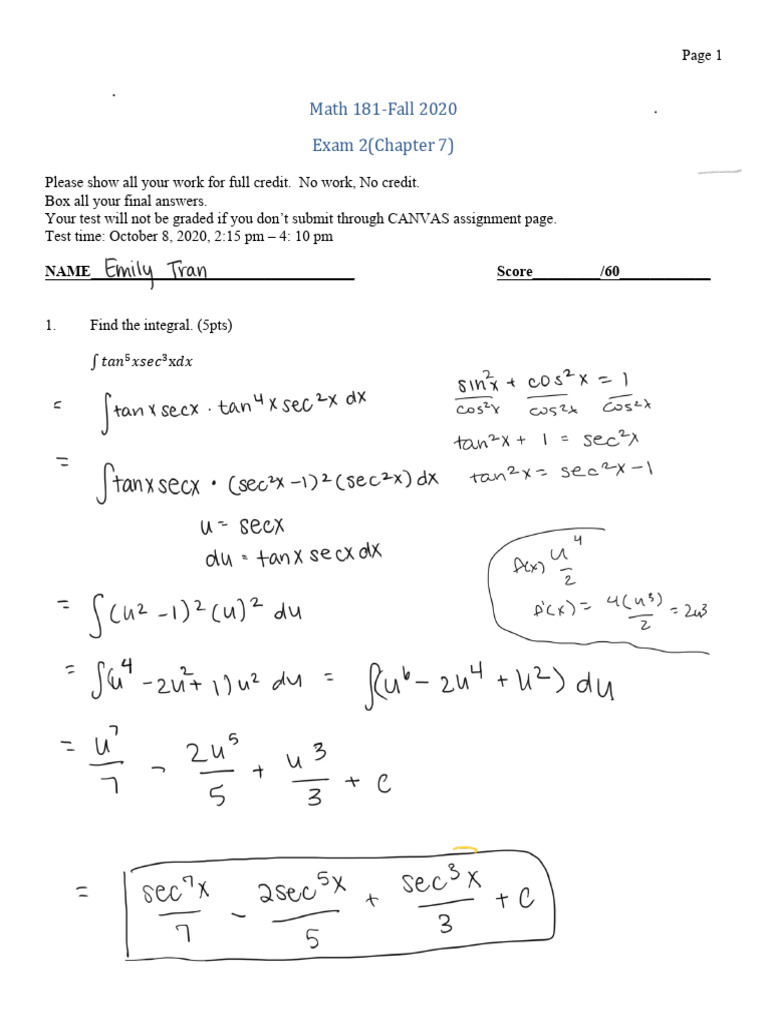 Page 1
Math 181-Fall 2020
Exam 2(Chapter 7)
Please show all your work for full credit.  No work, No credit.
Box all your final answers.
Your test will not be graded if you don’t submit through CANVAS assignment page.
Test time: October 8, 2020, 2:15 pm – 4: 10 pm
NAME Emily Tran Score________/60
1. Find the integral. (5pts)
∫tan⁵xsec³xdx
= ∫tanx secx · tan⁴x sec²x dx
sin²x/cos²x + cos²x/cos²x = 1/cos²x
tan²x + 1 = sec²x
tan²x = sec²x - 1
= ∫tanx secx · (sec²x -1)²(sec²x)dx
u = secx
du = tanx secx dx
f(x) u⁴/2
f'(x) = 4(u³)/2 = 2u3
= ∫(u² -1)²(u)² du
= ∫(u⁴ -2u²+1)u² du = ∫(u⁶ - 2u⁴ + u²) du
= u⁷/7 - 2u⁵/5 + u³/3 + c
= sec⁷x/7 - 2sec⁵x/5 + sec³x/3 + c